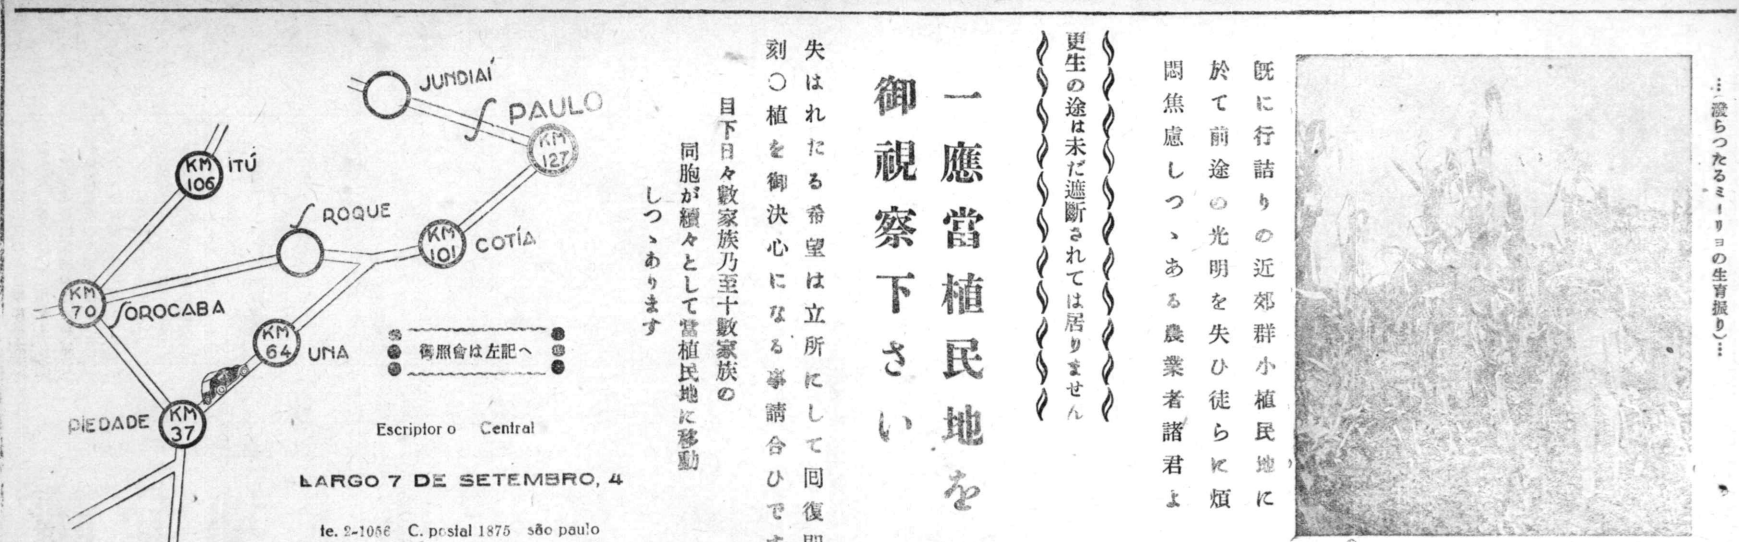 …(潑らつたるミーリヨの生育振り)…
既に行詰りの近郊群小植民地に
於て前途の光明を失ひ徒らに煩
悶焦慮しつヽある農業者諸君よ
更生の途は未だ遮斷されては居りません
一應當植民地を
御視察下さい
失はれたる希望は立所にして回復即
刻〇植を御決心になる事請合ひです
目下日々數家族乃至十數家族の
同胞が續々として當植民地に移動
しつヽあります
JUNDIAÍ
S PAULO
KM 127
KM 106
ITÚ
S ROQUE
KM 101
COTÍA
KM 70
SOROCABA
KM 64
UNA
PIEDADE
KM 37
御照會は左記へ
Escriptorio Central
LARGO 7 DE SETEMBRO, 4
te. 2-1056 C. postal 1875 são paulo